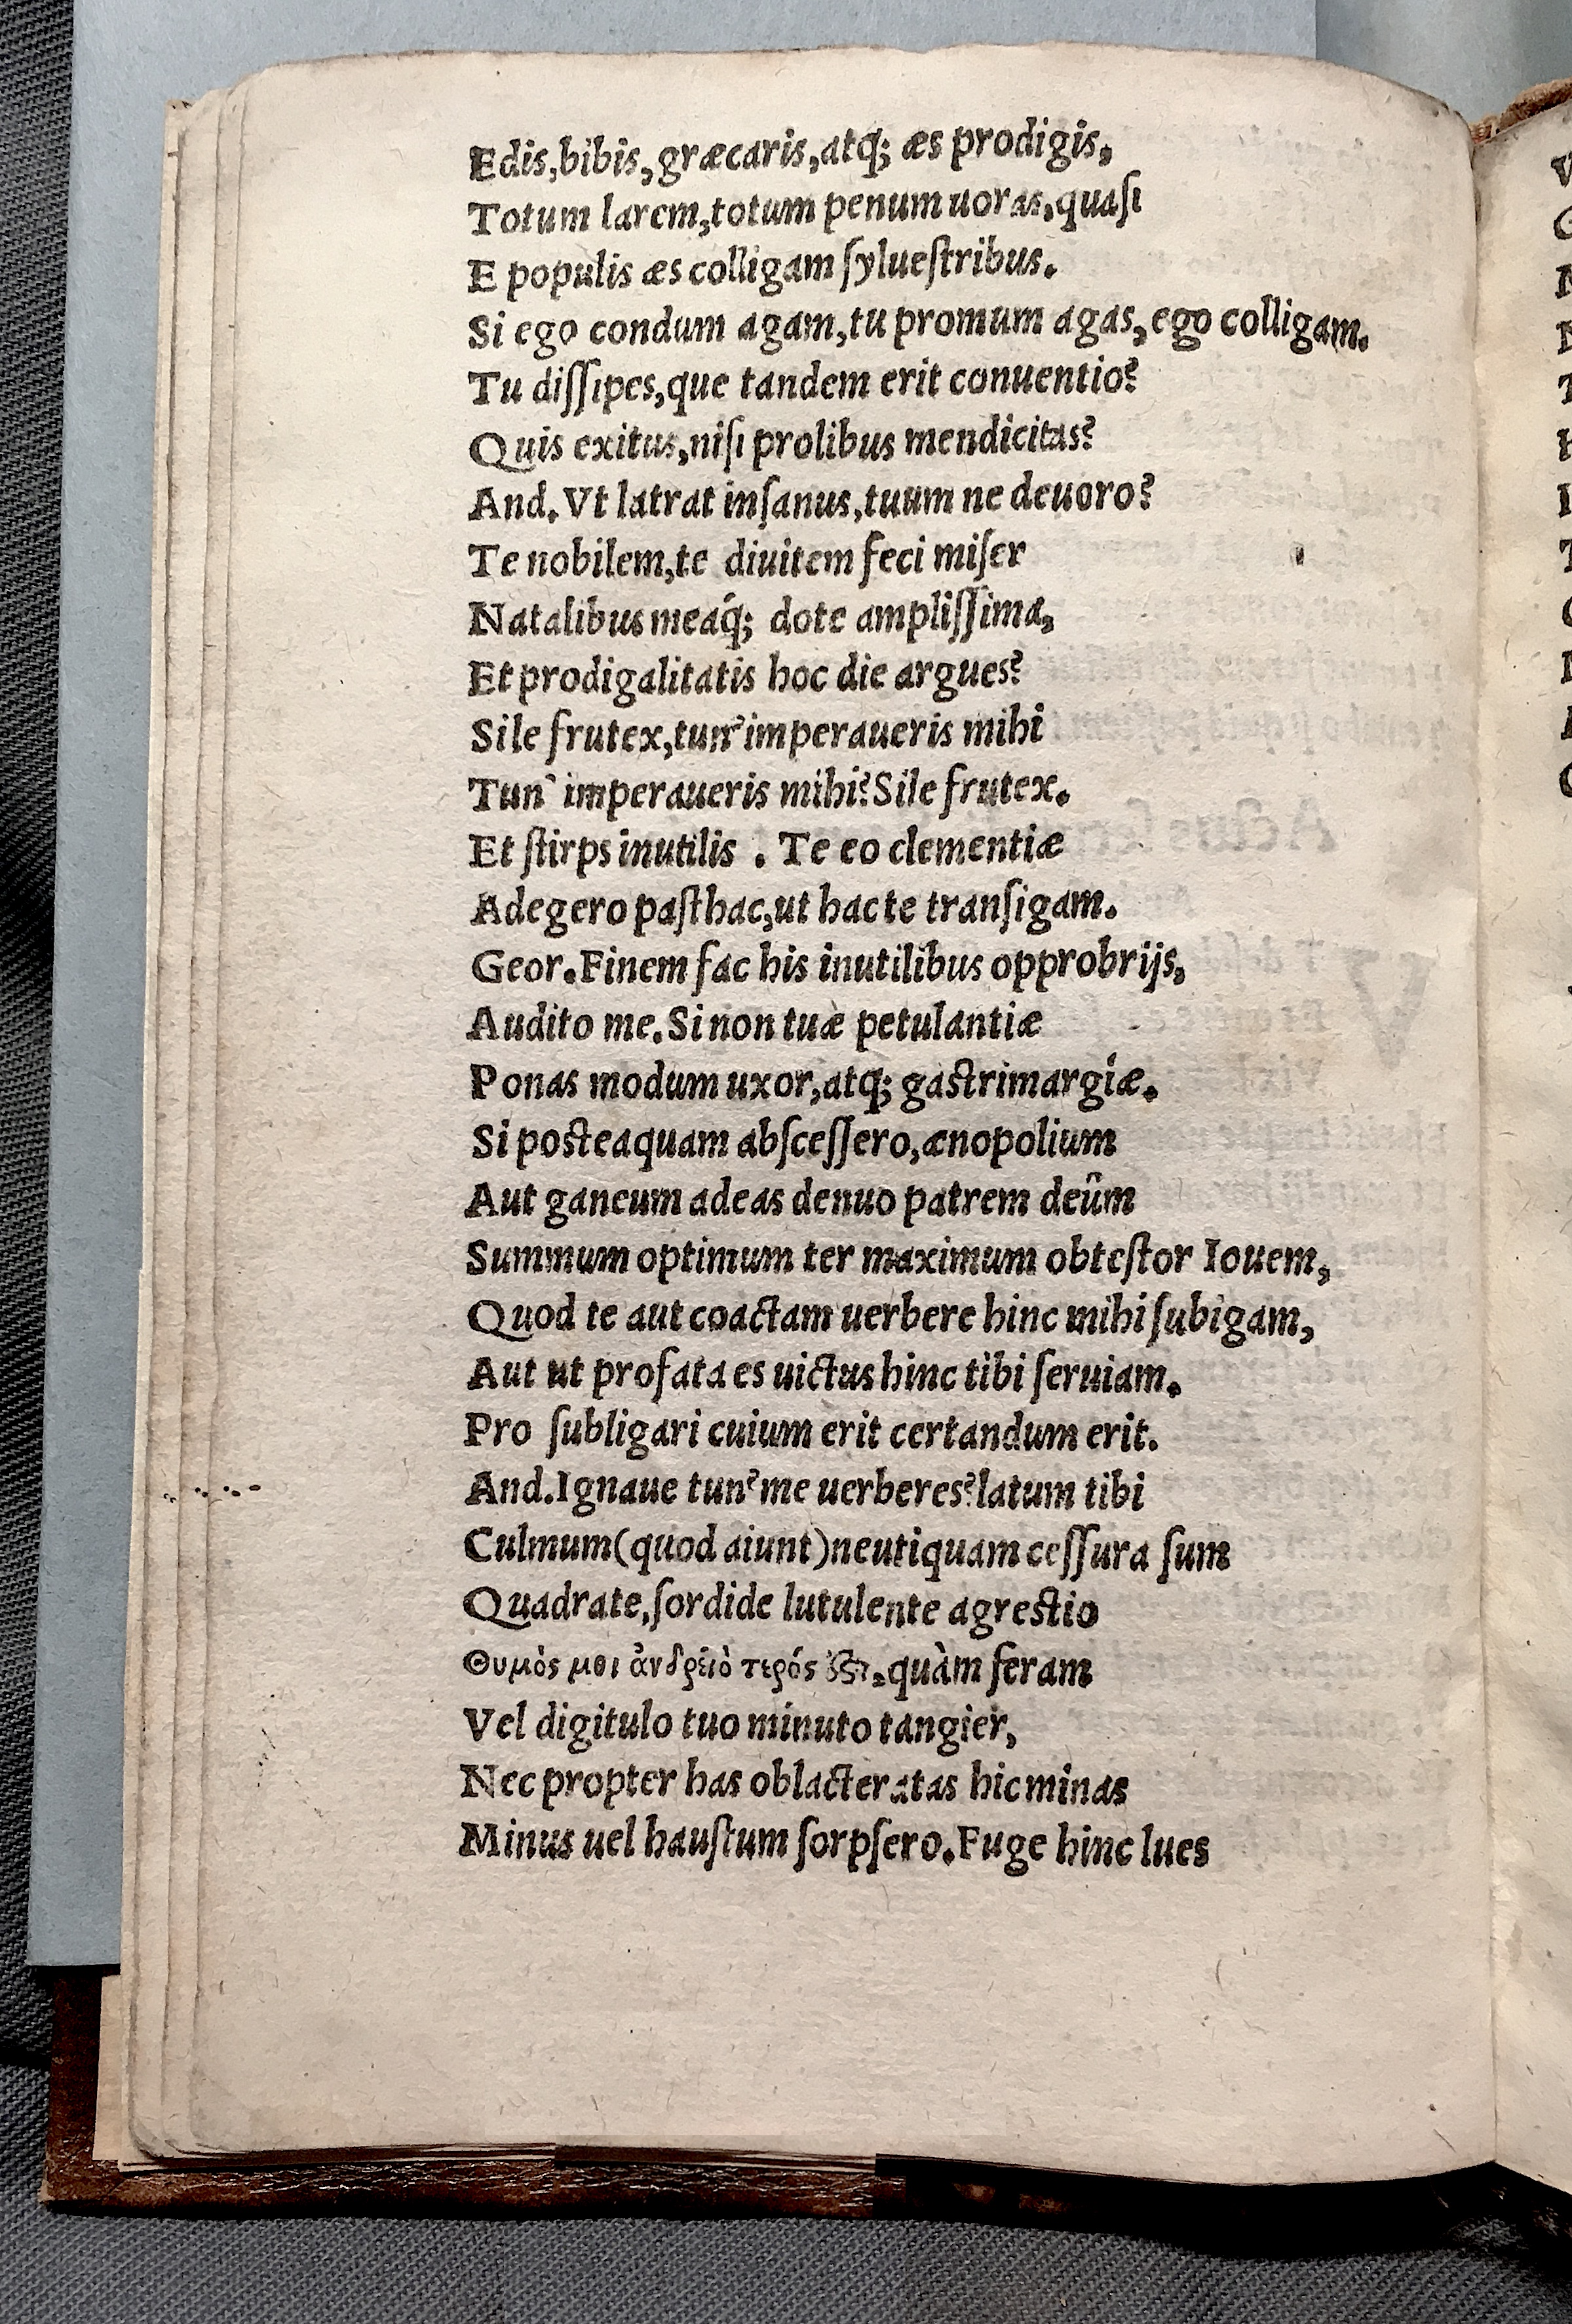 Edis,bibis,græcaris,atq; æs prodigis,
Totum larem,totum penum uoras,quaſi
E populis æs colligam ſylueſtribus.
Si ego condum agam,tu promum agas,ego colligam.
Tu diſſipes,que tandem erit conuentio?
Quis exitus,niſi prolibus mendicitas?
And. Vt latrat inſanus,tuum ne deuoro?
Te nobilem,te diuitem feci miſer
Natalibus meaq́; dote ampliſſima,
Et prodigalitatis hoc die argues?
Sile frutex,tun' imperaueris mihi
Tun' imperaueris mihi?Sile frutex.
Et ſtirps inutilis . Te eo clementiæ
Adegero paſthac,ut hac te tranſigam.
Geor.Finem fac his inutilibus opprobrijs,
Audito me.Si non tuæ petulantiæ
Ponas modum uxor,atq; gastrimargíæ.
Si posteaquam abſceſſero,ænopolium
Aut ganeum adeas denuo patrem deûm
Summum optimum ter maximum obteſtor Iouem,
Quod te aut coactam uerbere hinc mihi ſubigam,
Aut ut profata es uictus hinc tibi ſeruiam.
Pro ſubligari cuium erit certandum erit.
And.Ignaue tun? me uerberes?latum tibi
Culmum(quod aiunt)neutiquam ceſſura ſum
Quadrate,ſordide lutulente agrestio
Θυμὸς μοι ἀνδρειὸ τερός quàm feram
Vel digitulo tuo minuto tangier,
Nec propter has oblacteratas hic minas
Minus uel hauſtum ſorpſero.Fuge hinc lues